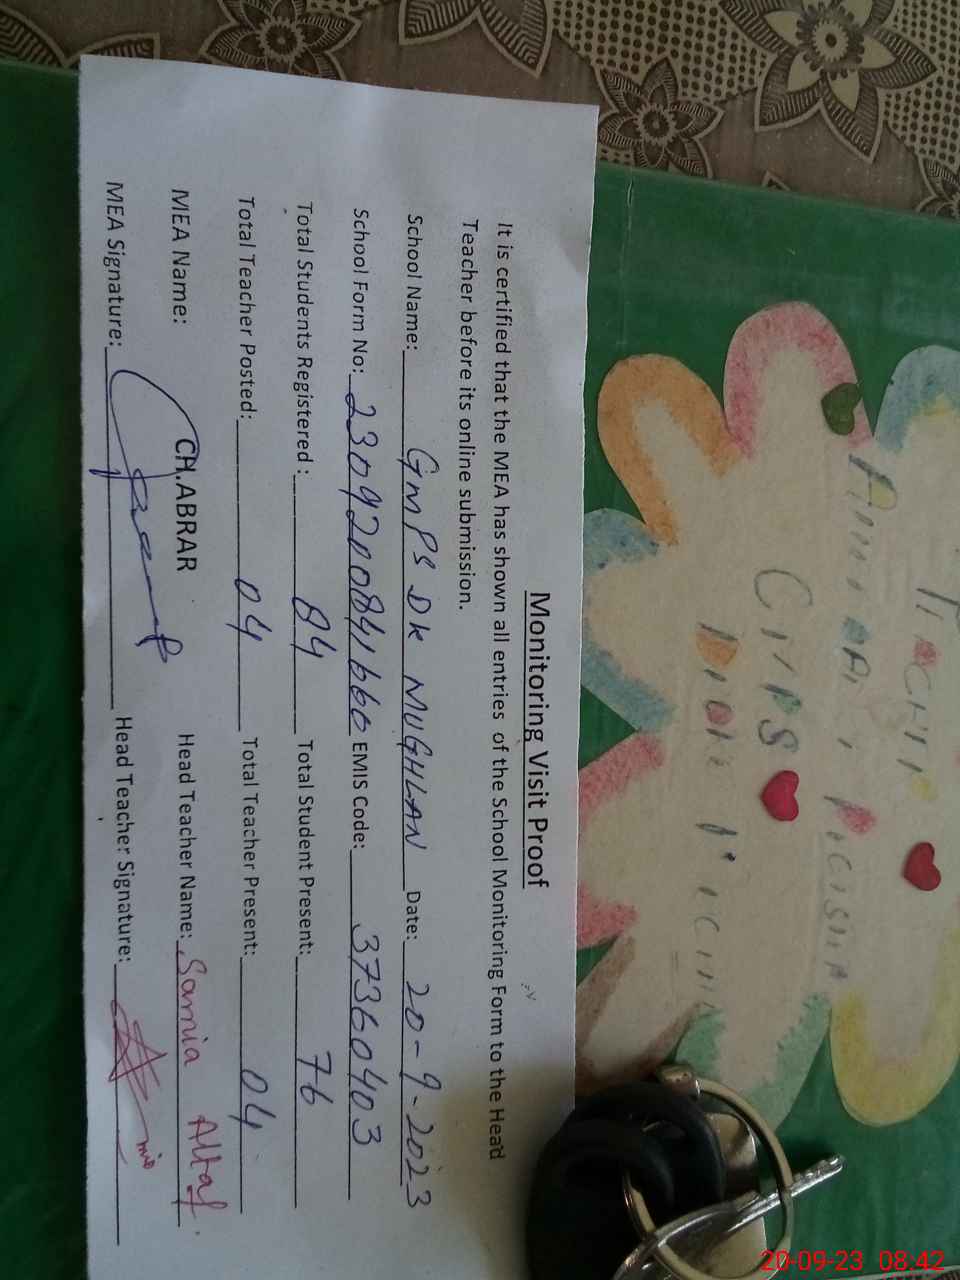 Monitoring Visit Proof
It is certified that the MEA has shown all entries of the School Monitoring Form to the Head
Teacher before its online submission.
School Name: GMPS DK MUGHLAN Date: 20-9-2023
School Form No: 2309200841660 EMIS Code: 37360403
Total Students Registered : 84 Total Student Present: 76
Total Teacher Posted: 04 Total Teacher Present: 04
MEA Name: CH.ABRAR Head Teacher Name: Samia Altaf
MEA Signature: Head Teacher Signature:
20-09-23 08:42